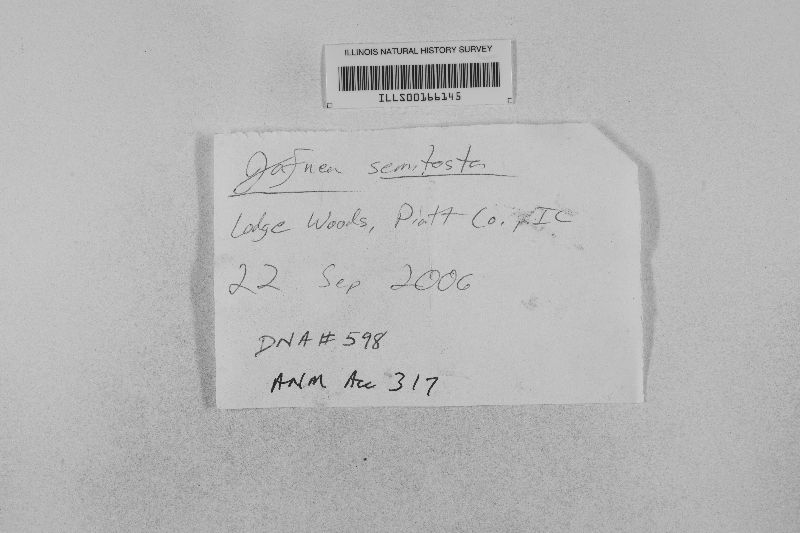 ILLINOIS NATURAL HISTORY SURVEY
ILLS00166145
Jafnea semitosta
Lodge Woods, Piatt Co., IL
22 Sep 2006
DNA# 598
ANM Acc 317